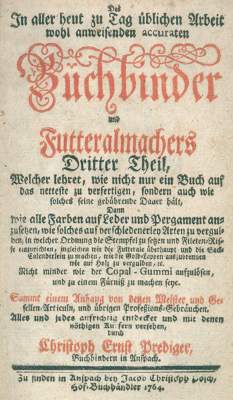 Des
In aller heut zu Tag üblichen Arbeit
wohl anweisenden accuraten
Buchbinder
und
Futteralmachers
Dritter Theil,
Welcher lehret, wie nicht nur ein Buch auf
das netteste zu verfertigen, sondern auch wie
solches seine gebührende Dauer hält,
Dann
wie alle Farben auf Leder und Pergament an-
zusehen, wie solches auf verschiedenerley Arten zu vergul-
den, in welcher Ordnung die Stempfel zu setzen und Fileten-Risse
einzurichten, ingleichen wie die Futterale überhaupt und die Sack-
Calenderlein zu machen, wie die Gold-Leppen auszubrennen
wie auf Holz zu vergulden, etc.
Nicht minder wie der Copal-Gummi aufzulösen,
und zu einem Fürniß zu machen seye.
Sammt einem Anhang von denen Meister und Ge-
sellen-Articuln, und übrigen Profeßions-Gebräuchen.
Alles und jedes aufrichtig entdecket und mit denen
nöthigen Kupfern versehen,
durch
Christoph Ernst Prediger,
Buchbindern in Anspach.
Zu finden in Anspach bey Jacob Christoph
Hof-Buchhändler 1764.